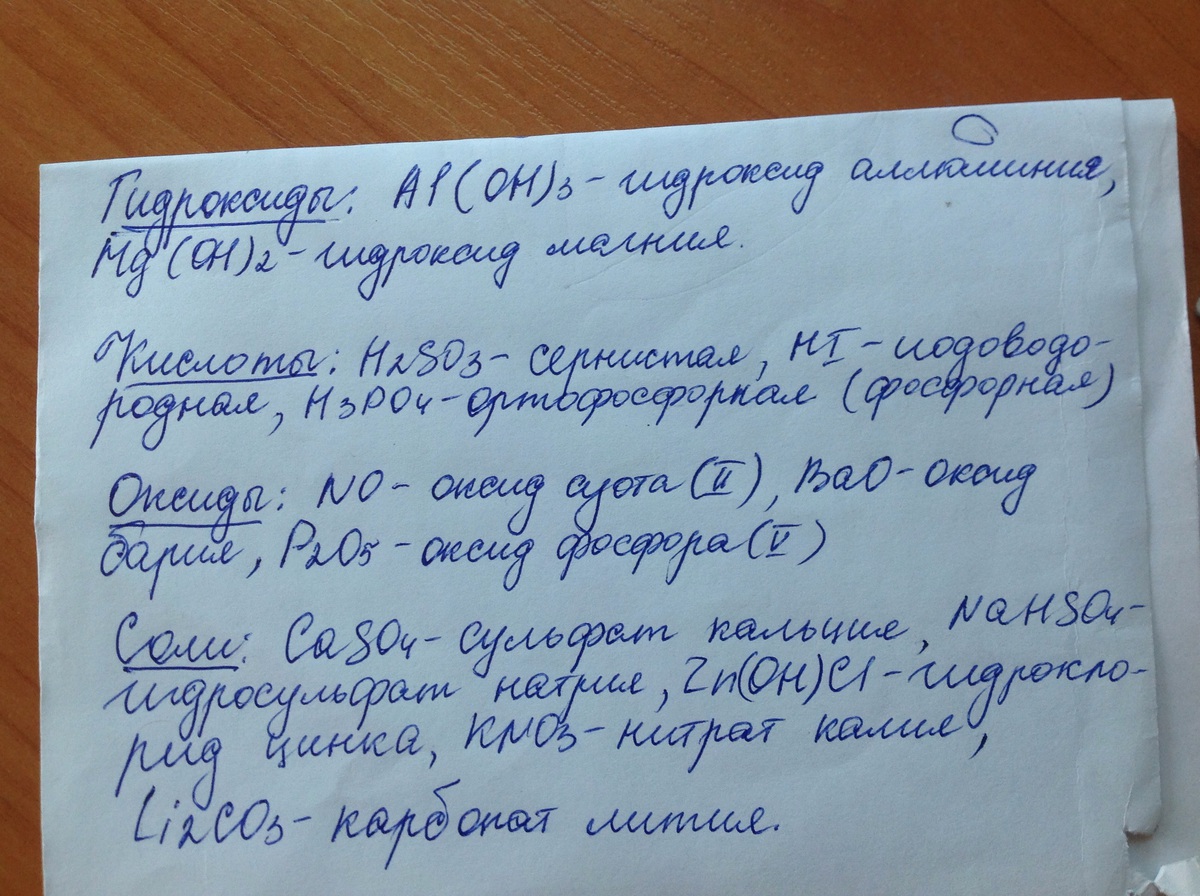 Гидроксиды: Al(OH)3 - гидроксид аллюминия,
Mg(OH)2 - гидроксид магния.
Кислоты: H2SO3 - сернистая, HI - иодоводо-
родная, H3PO4 - ортофосфорная (фосфорная)
Оксиды: NO - оксид азота (II), BaO - оксид
бария, P2O5 - оксид фосфора (V)
Соли: CaSO4 - сульфат кальция, NaHSO4 -
гидросульфат натрия, Zn(OH)Cl - гидрокло-
рид цинка, KNO3 - нитрат калия,
Li2CO3 - карбонат лития.